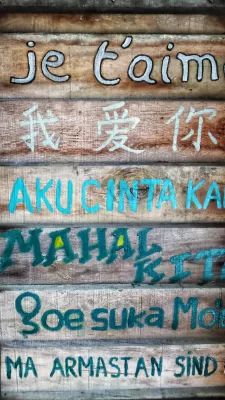 je t'aime
我爱你
AKU CINTA KA
MAHAL
KITA
suka
MA ARMASTAN SIND